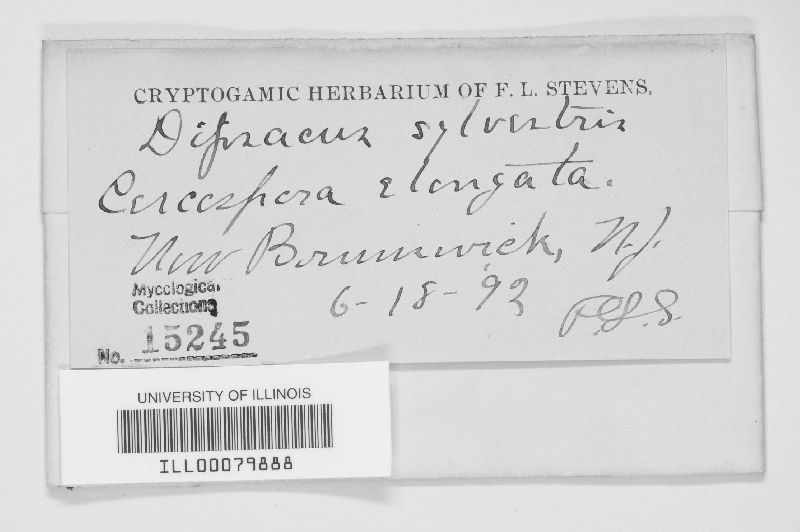 CRYPTOGAMIC HERBARIUM OF F. L. STEVENS.
Dipsacus sylvestris
Cercospora elongata.
New Brunswick, N.J.
6-18-'92
F.L.S.
Mycological
Collections
No. 15245
UNIVERSITY OF ILLINOIS
ILL00079888